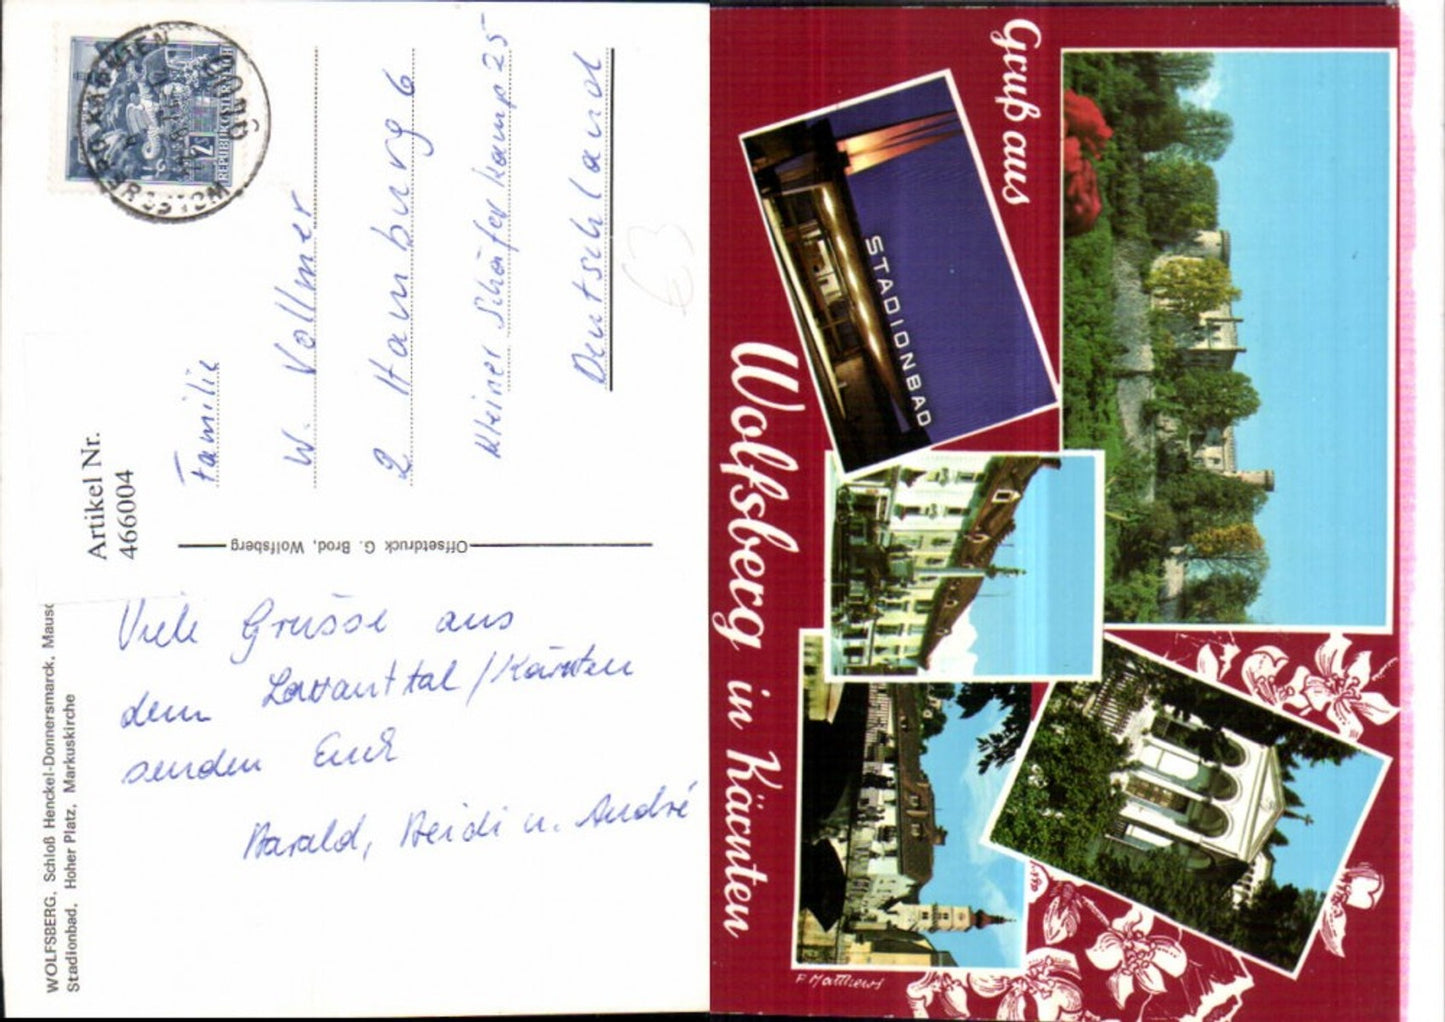 WOLFSBERG. Schloß Henckel-Donnersmarck.
Stadionbad. Hoher Platz. Markuskirche
Artikel Nr.
466004
Viele Grüsse aus
dem Lavanttal/Kärnten
senden Euch
Harald, Heidi u. André
Offsetdruck G. Brod, Wolfsberg
2s
REPUBLIK ÖSTERREICH
Familie
W. Vollmer
2 Hamburg 6
Kleiner Schäferkamp 25
Deutschland
€3
Gruß aus
STADIONBAD
Wolfsberg in Kärnten
F. Matthews